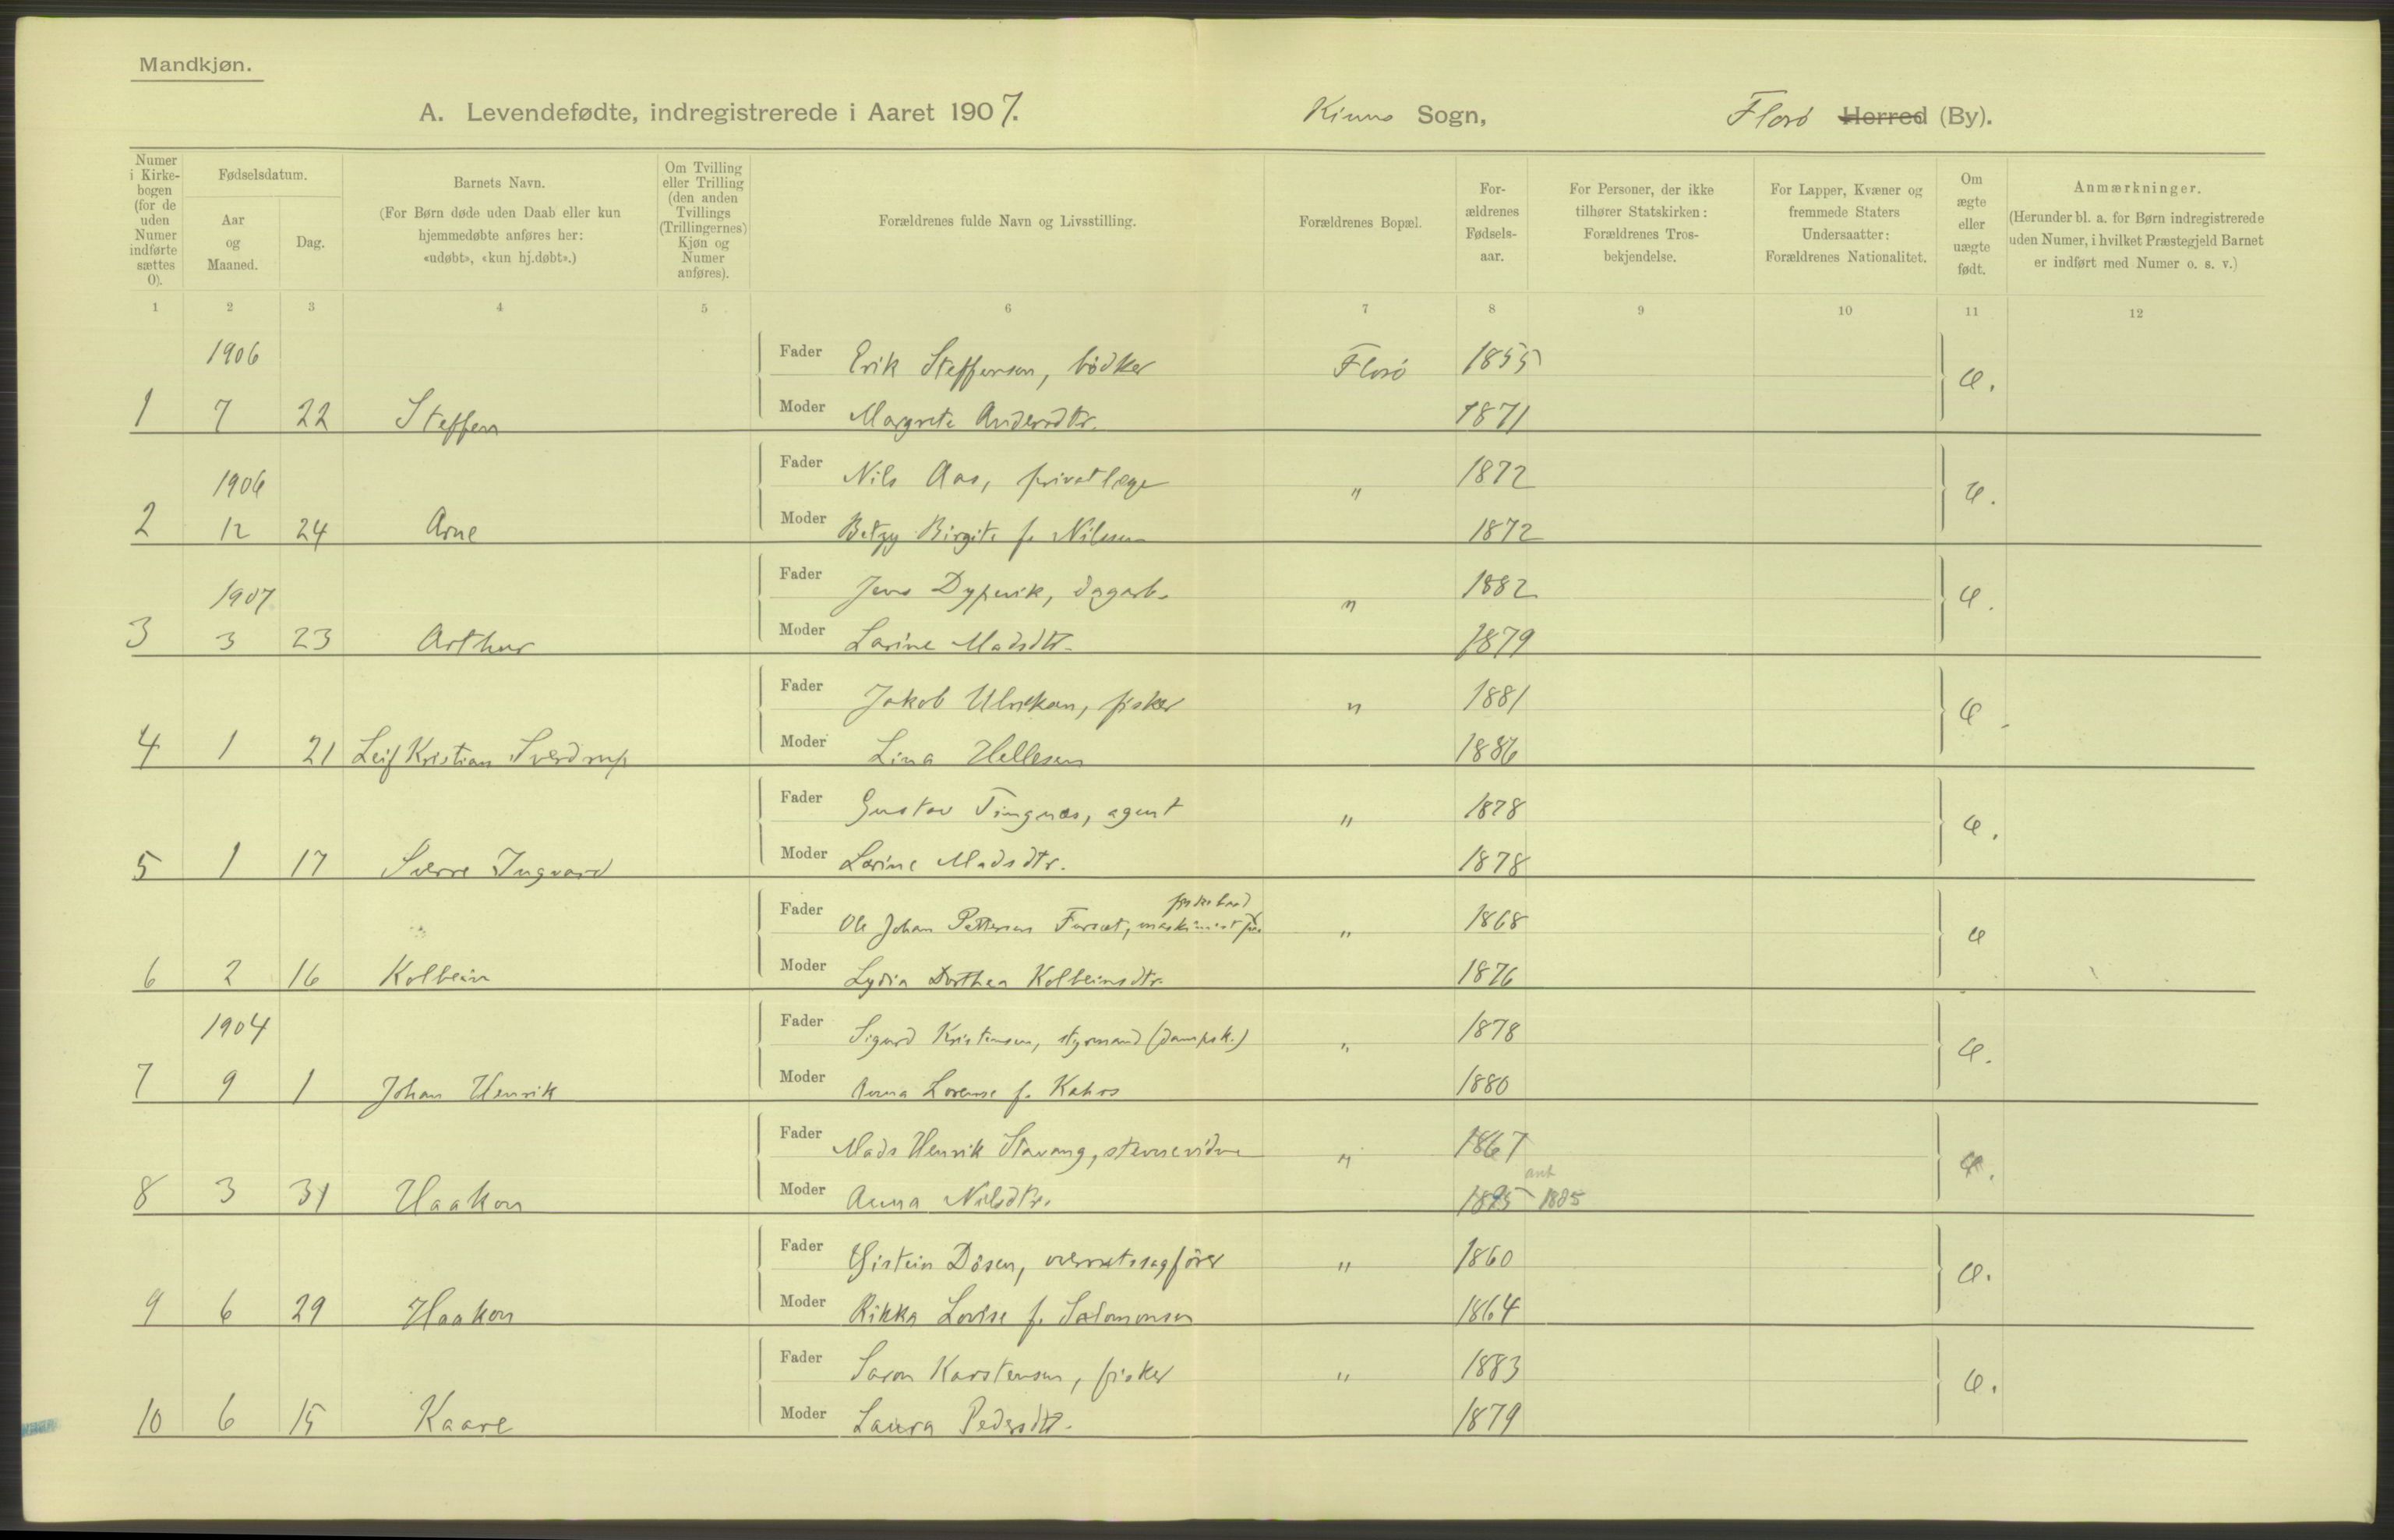 Mandkjøn.
A. Levendefødte, indregistrerede i Aaret 1907. Kinns Sogn, Florö Herred (By).
Numer i Kirke-bogen (for de uden Numer indførte sættes 0).
Fødselsdatum.
Aar og Maaned.
Dag.
Barnets Navn.
(For Børn døde uden Daab eller kun hjemmedøbte anføres her: «udøbt», «kun hj.døbt».)
Om Tvilling eller Trilling (den anden Tvillings (Trillingernes) Kjøn og Numer anføres).
Forældrenes fulde Navn og Livsstilling.
Forældrenes Bopæl.
For-ældrenes Fødsels-aar.
For Personer, der ikke tilhører Statskirken: Forældrenes Tros-bekjendelse.
For Lapper, Kvæner og fremmede Staters Undersaatter: Forældrenes Nationalitet.
Om ægte eller uægte født.
Anmærkninger.
(Herunder bl. a. for Børn indregistrerede uden Numer, i hvilket Præstegjeld Barnet er indført med Numer o. s. v.)
1 2 3 4 5 6 7 8 9 10 11 12
1906 Fader Erik Steffensen, bödker Florö 1855 æ.
1 7 22 Steffen Moder Margrete Andersdtr. 1871
1906 Fader Nils Aas, privatlæge " 1872 æ.
2 12 24 Arne Moder Betzy Birgite f. Nilssen 1872
1907 Fader Jens Dypevik, dagarb. " 1882 æ.
3 3 23 Arthur Moder Larine Madsdtr. 1879
Fader Jakob Ulriksen, fisker " 1881 æ
4 1 21 Leif Kristian Sverdrup Moder Lina Hellesen 1886
Fader Gustav Tingnæs, agent " 1878 æ.
5 1 17 Sverre Ingvard Moder Larine Madsdtr. 1878
Fader Ole Johan Pettersen Furset, maskinist " 1868 æ
6 2 16 Kolbein Moder Lydia Dorthea Kolbeinsdtr. 1876
1904 Fader Sigurd Kristensen, styrmand (dampsk.) " 1878 æ.
7 9 1 Johan Henrik Moder Anna Lorense f. Kahrs 1880
Fader Mads Henrik Stavang, stevnevidne " 1867 æ.
8 3 31 Haakon Moder Anna Nilsdtr. 1885 ant 1885
Fader Eistein Dösen, overretssagförer " 1860 æ.
9 6 29 Haakon Moder Rikka Lovise f. Salomonsen 1864
Fader Saron Karstensen, fisker " 1883 æ.
10 6 15 Kaare Moder Laura Pedersdtr. 1879